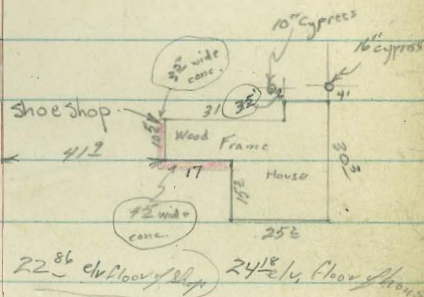 10" Cypress
16" cypress
3 2 wide
conc.
Shoe Shop
31
35'
4'
Wood Frame
House
41 9
17
30 3
151
4 5 wide
conc.
25 2
22 86 elv floor of shop
24 18 elv, floor of house